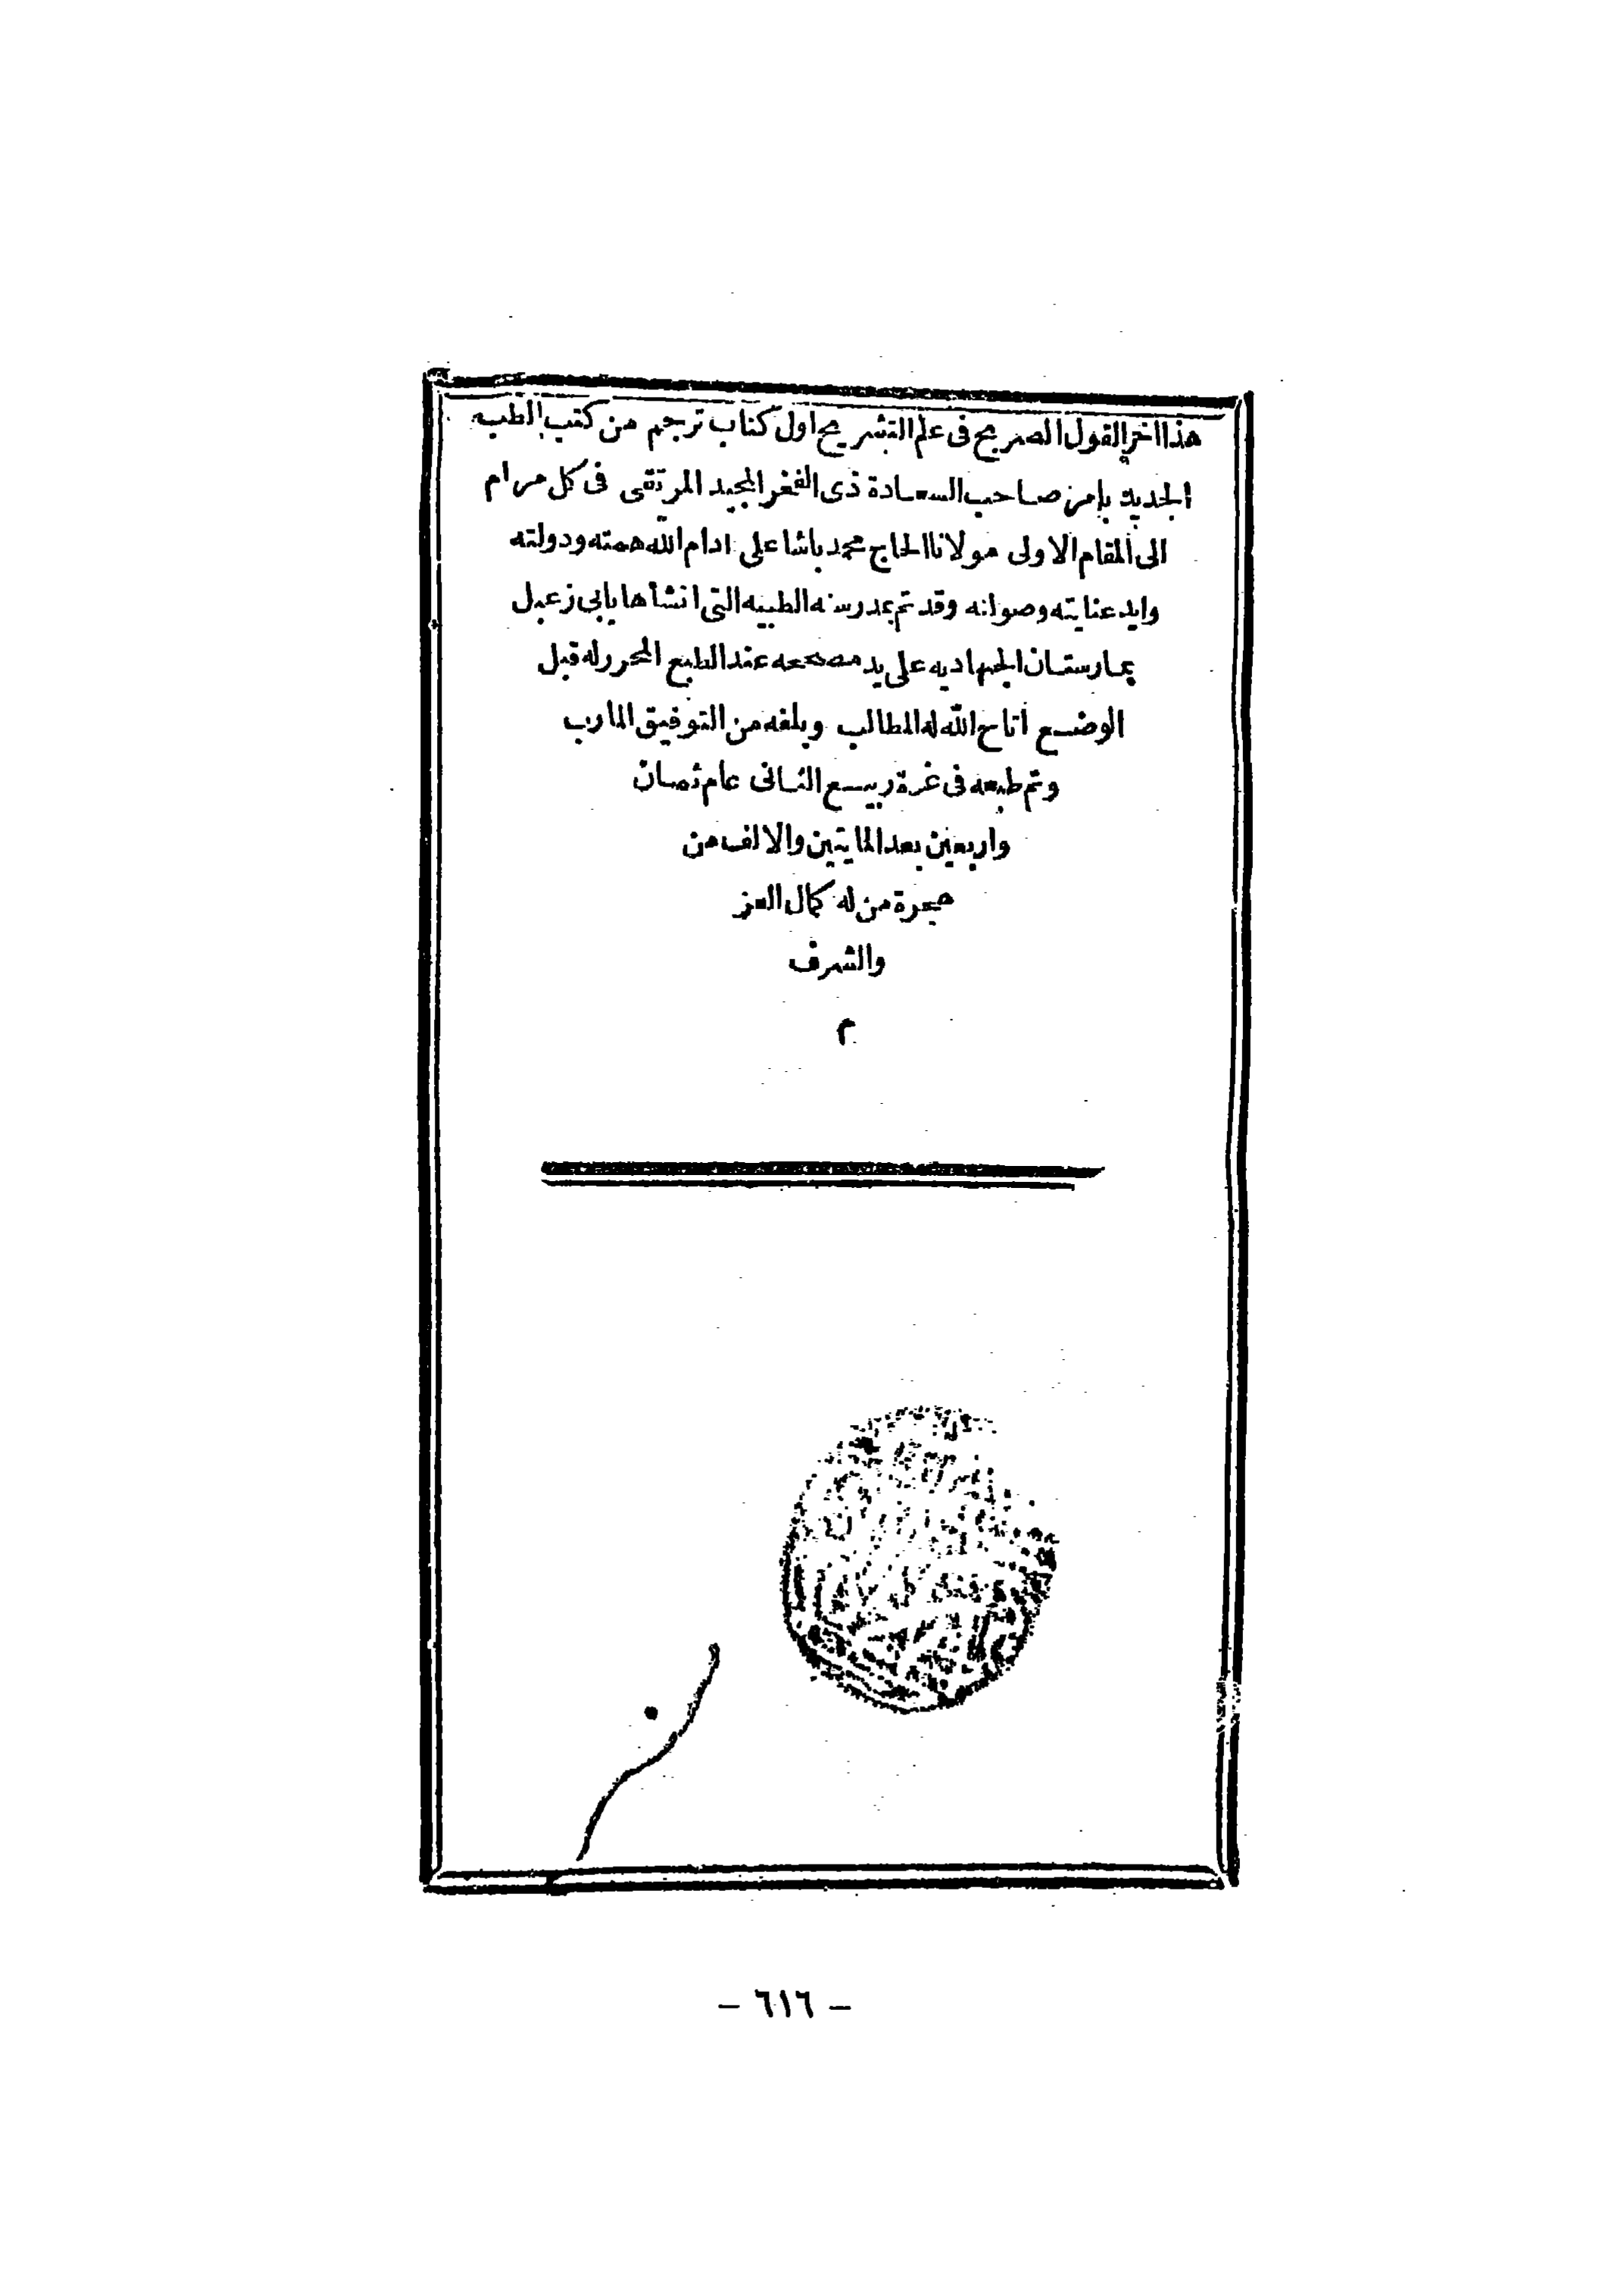 هذا اخر القول الصريح فى علم التشريح اول كتاب ترجم من كتب الطب
الجديد بامر صاحب السعادة ذى الفخر المجيد المرتقى فى كل مرام
الى المقام الاولى مولانا الحاج محمد باشا على ادام الله همته ودولته
وايد عنايته وصولته وقد تم بمدرسته الطبيه التى انشأها بابى زعبل
بمارستان الجهاديه على يد مصححه عند الطبع المحرر له قبل
الوضع أتاح الله له المطالب وبلغه من التوفيق المارب
وتم طبعه فى غرة ربيع الثانى عام ثمان
واربعين بعد المايتين والالف من
هجرة من له كمال العز
والشرف
م
- ٦١٦ -